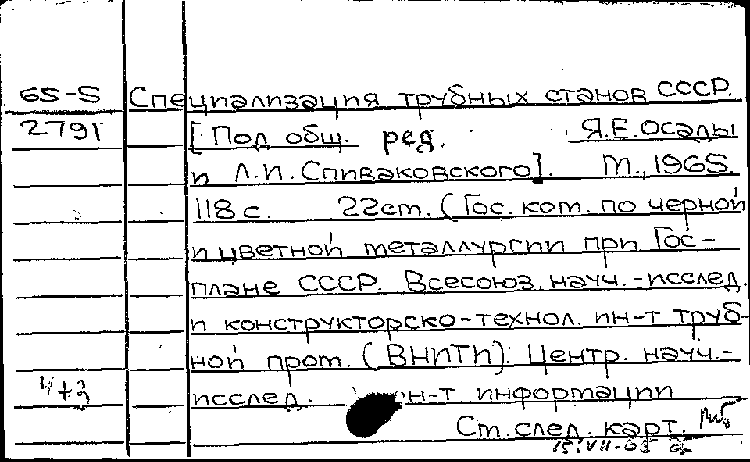 65-5 Специализация трубных станов СССР.
2791 [Под общ. ред. Я.Е.Осады
и Л.И.Спиваковского]. М., 1965.
118 с. 22см. (Гос. ком. по черной
и цветной металлургии при Гос-
плане СССР. Всесоюз. науч.-исслед.
и конструкторско-технол. ин-т труб-
ной пром. (ВНИТИ). Центр. науч.-
исслед. ин-т информации
См. след. карт.